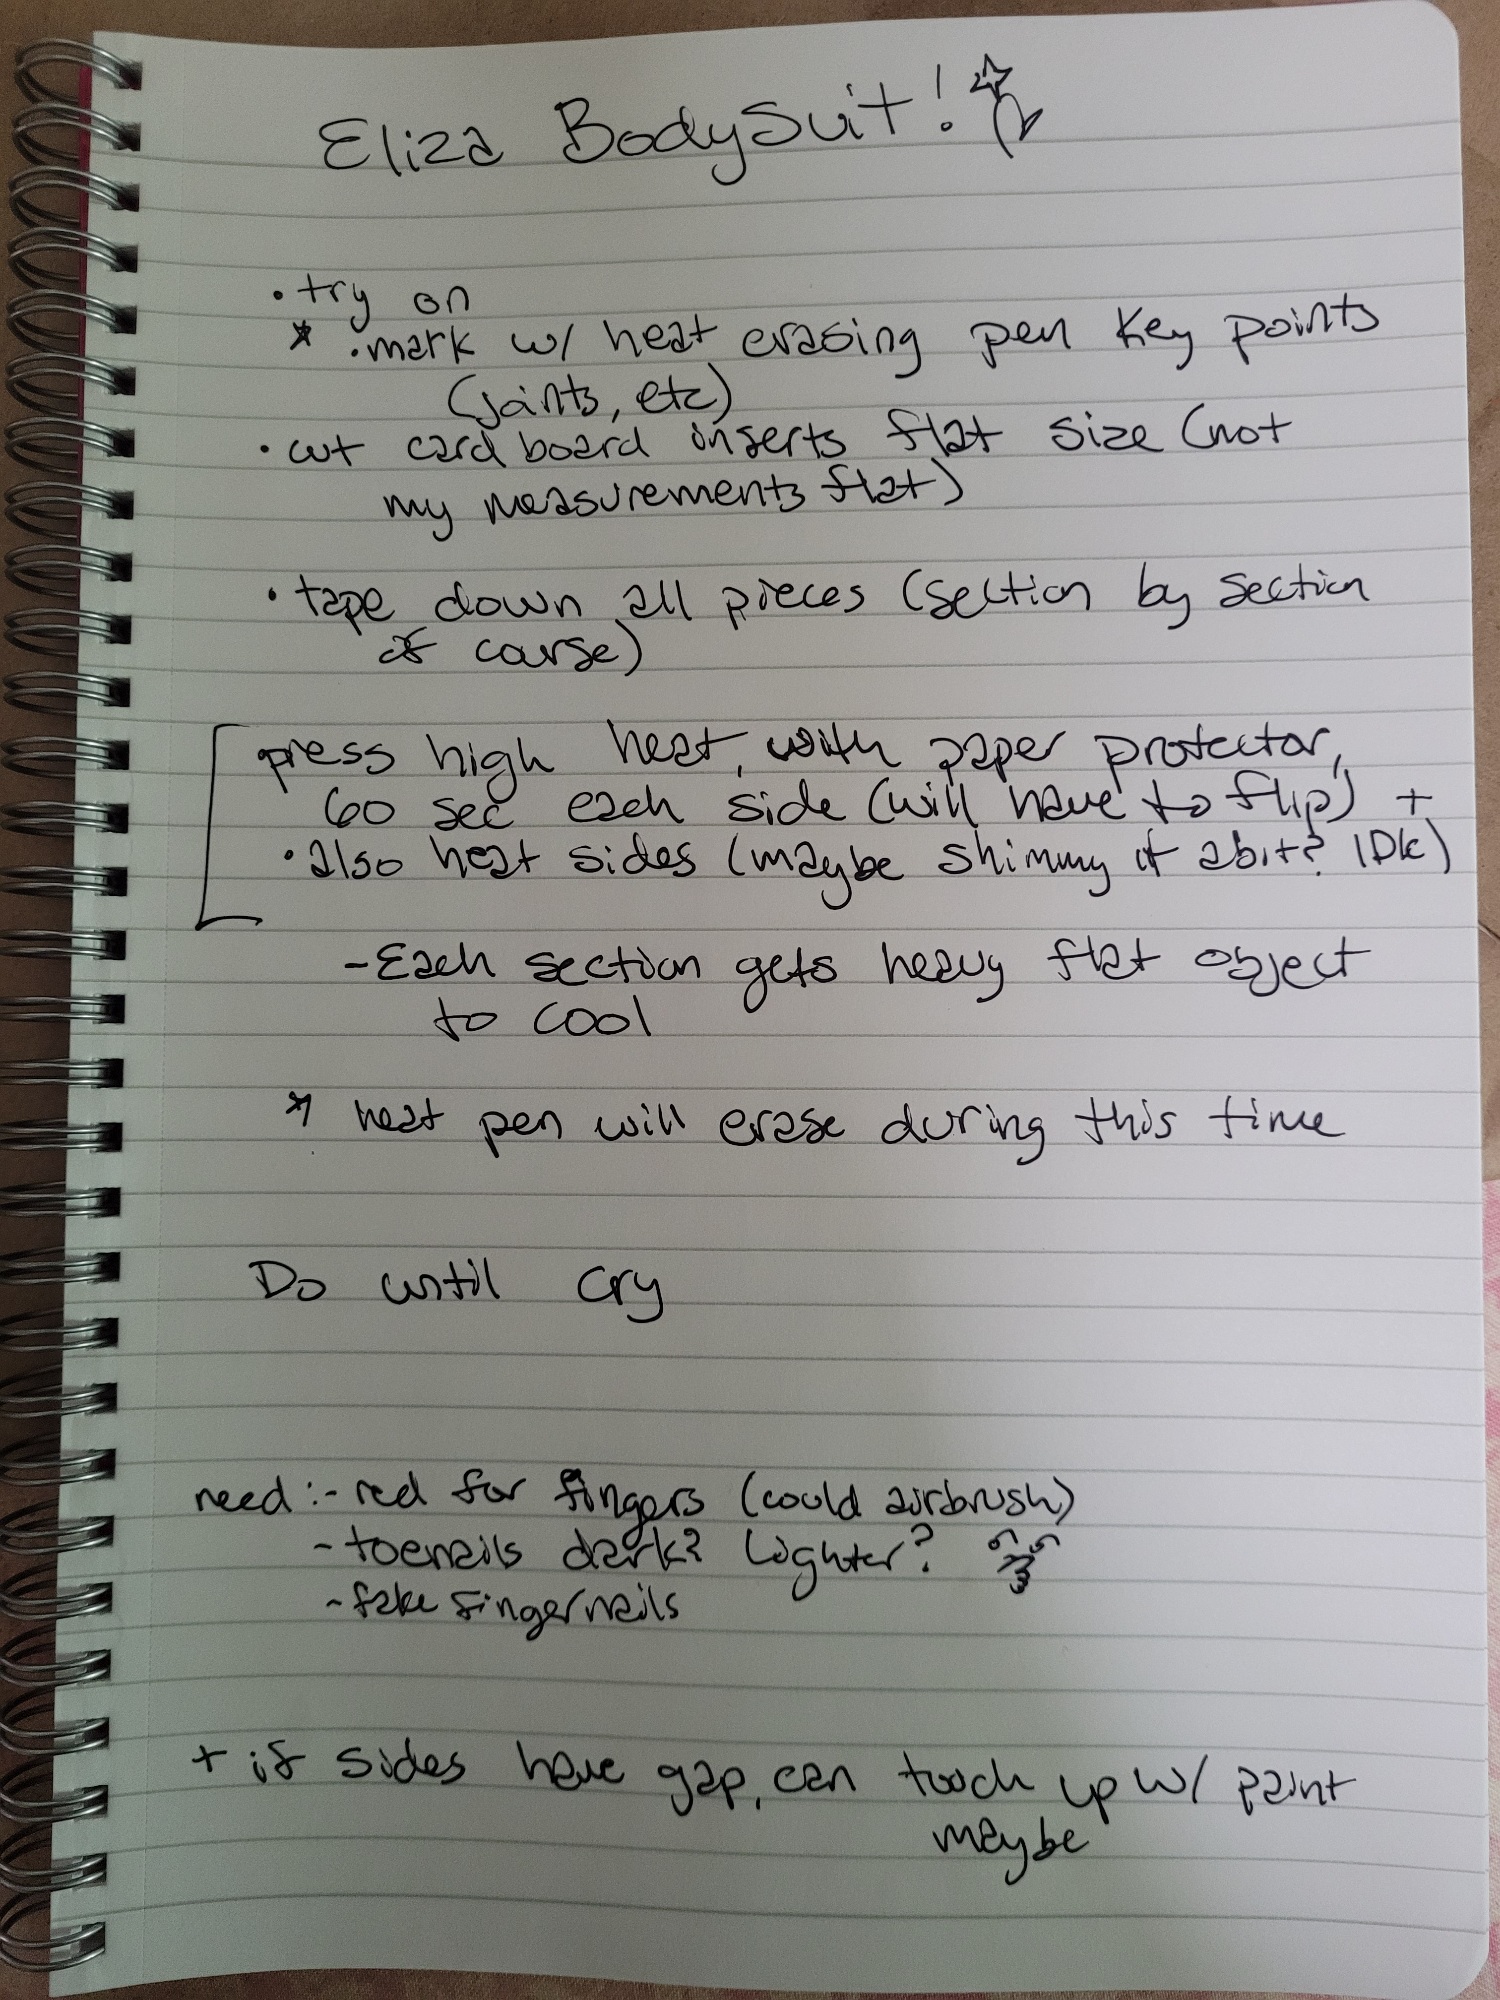 Eliza BodySuit!
• try on
* • mark w/ heat erasing pen key points
(joints, etc)
• cut cardboard inserts flat size (not
my measurements flat)
• tape down all pieces (section by section
of course)
press high heat, with paper protector,
60 sec each side (will have to flip) +
• also heat sides (maybe shimmy it abit? IDK)
- Each section gets heavy flat object
to cool
* heat pen will erase during this time
Do until cry
need :- red for fingers (could airbrush)
- toenails dark? Lighter?
- fake fingernails
+ if sides have gap, can touch up w/ paint
maybe